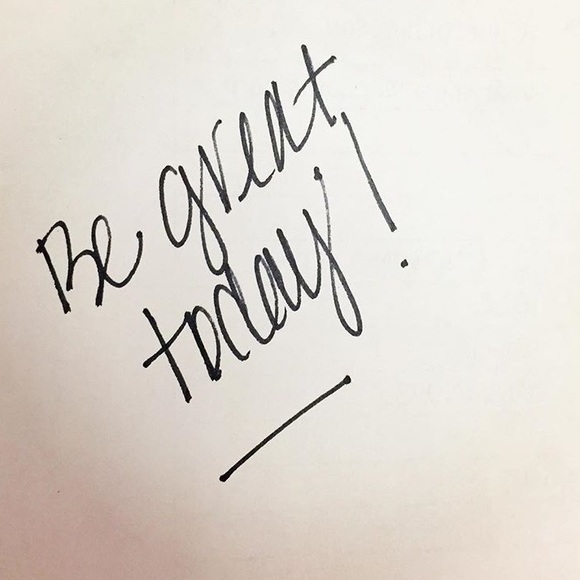 Be great
today!